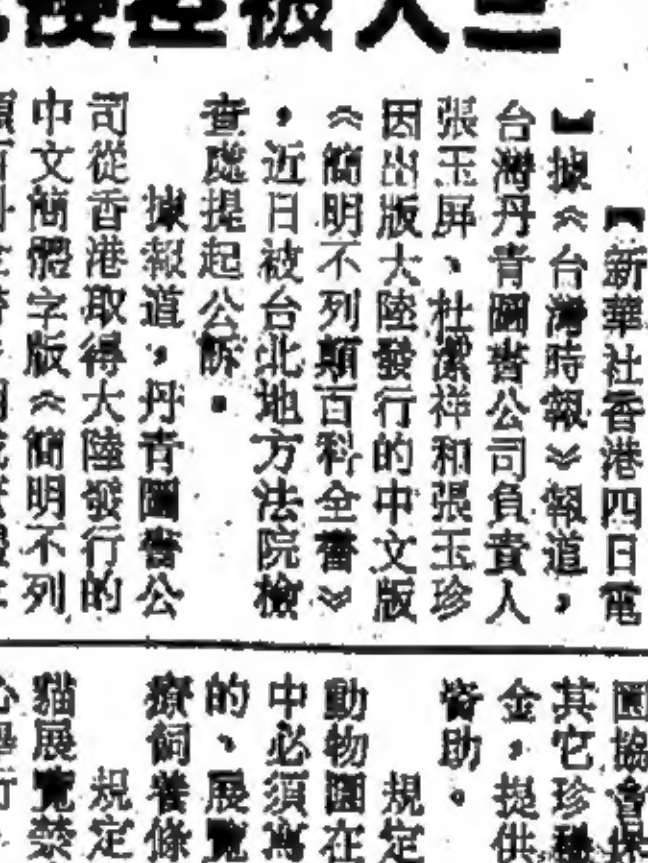 三人被控侵
【新華社香港四日電
】據《台灣時報》報道，
台灣丹青圖書公司負責人
張玉屏、杜潔祥和張玉珍
因出版大陸發行的中文版
《簡明不列顛百科全書》
，近日被台北地方法院檢
查處提起公訴。
據報道，丹青圖書公
司從香港取得大陸發行的
中文簡體字版《簡明不列
園協會保
其它珍稀
金，提供
資助。
規定
動物園在
中必須寫
的、展覽
療飼養條
規定
貓展覽禁